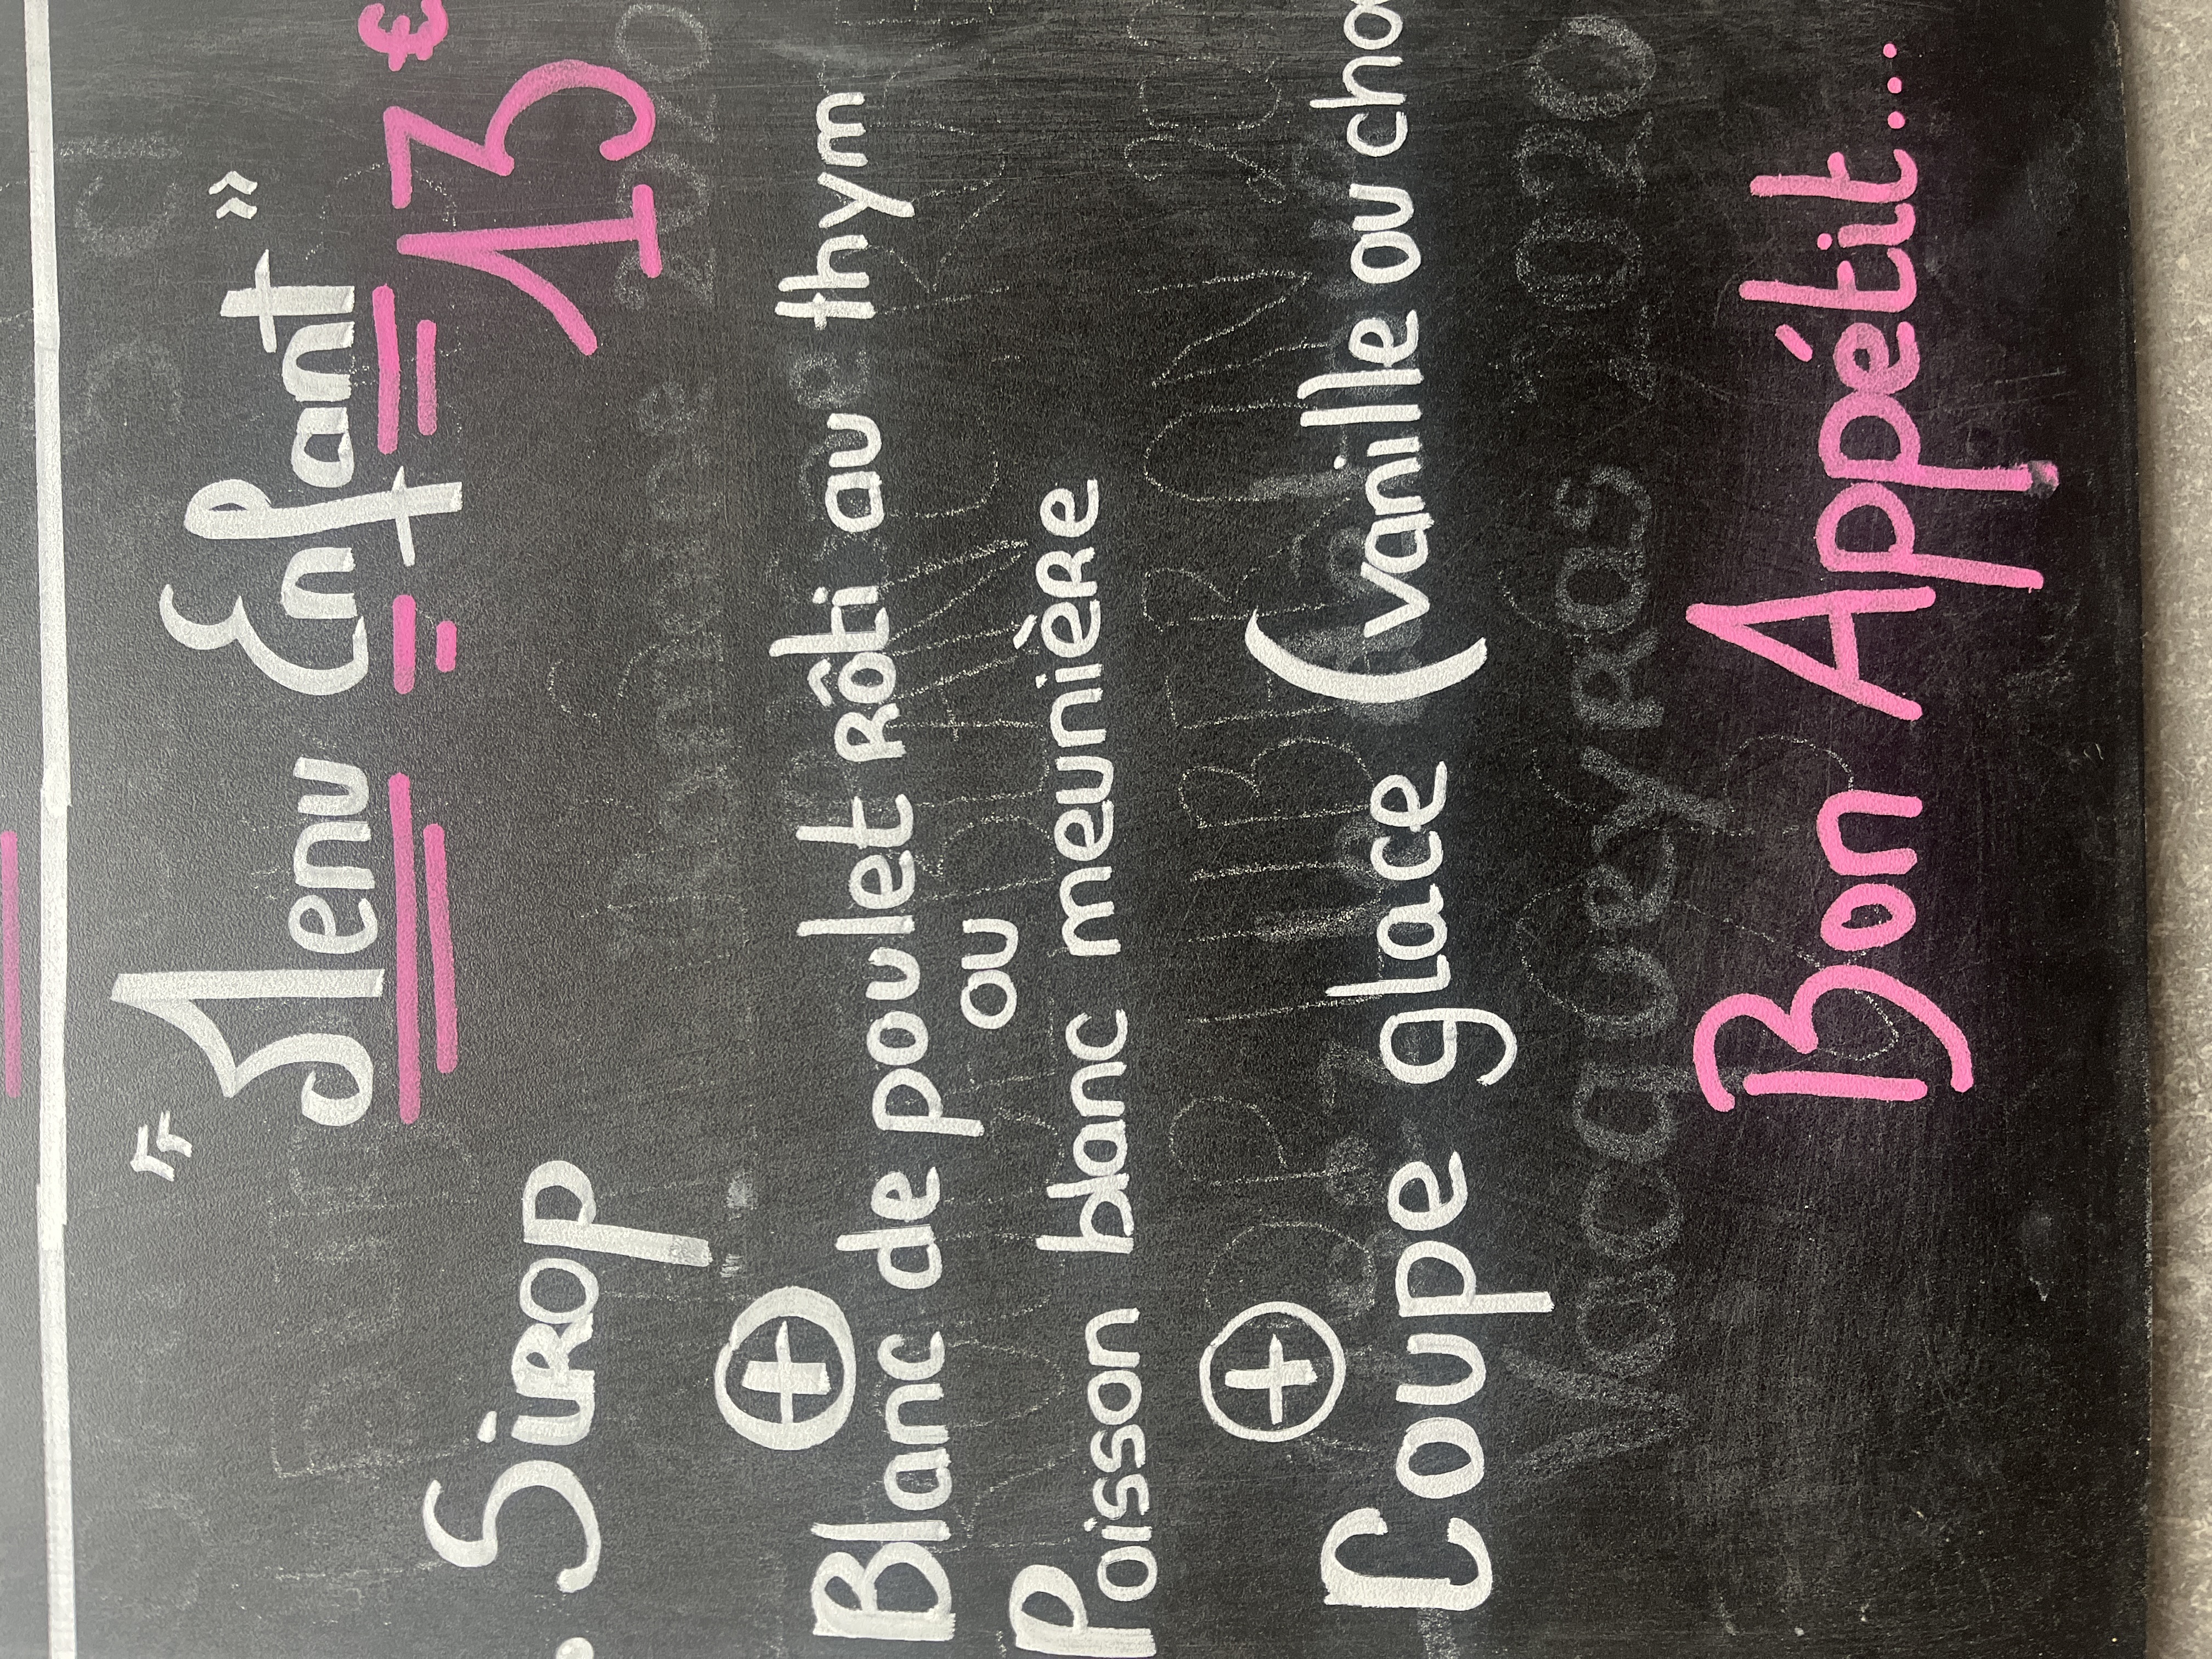 « Menu Enfant »
13€
.. Sirop
+
Blanc de poulet rôti au thym
ou
Poisson blanc meunière
+
Coupe glace (vanille ou cho
Vacqueyras 2020
Bon Appétit...